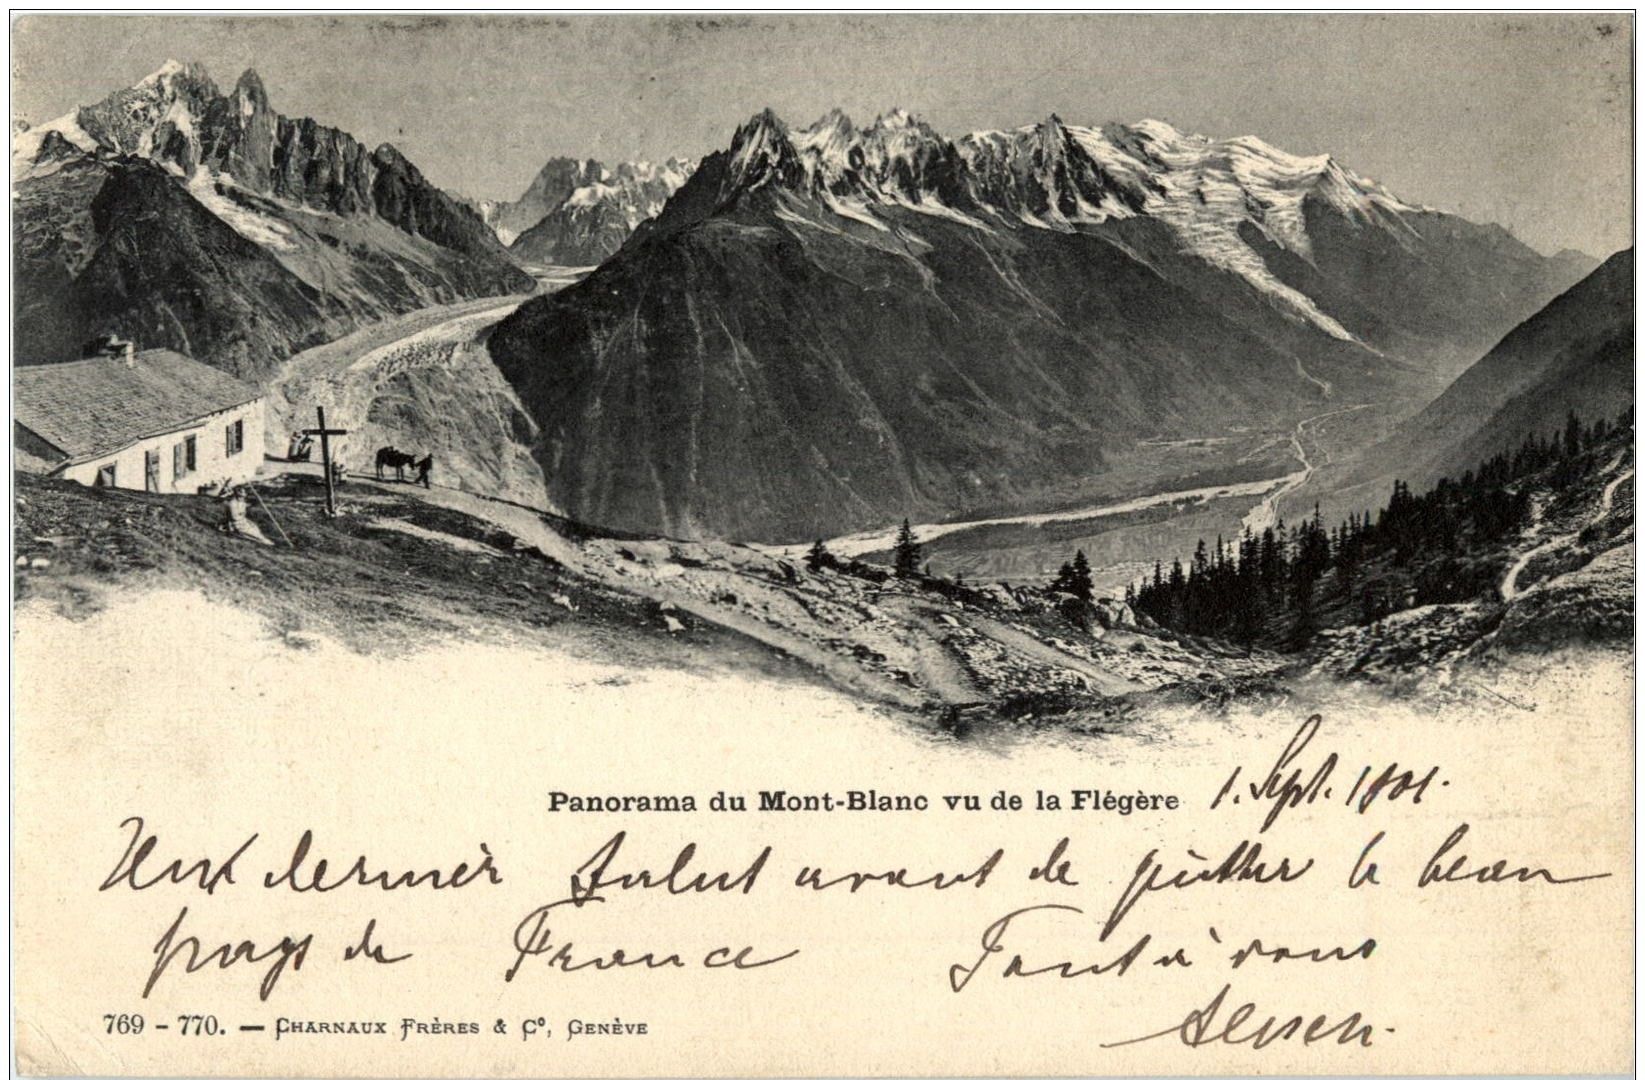 Panorama du Mont-Blanc vu de la Flégère 1. Sept. 1901.
Un dernier salut avant de quitter le beau
pays de France Tout à vous
769 - 770. — CHARNAUX FRÈRES & Cº, GENÈVE